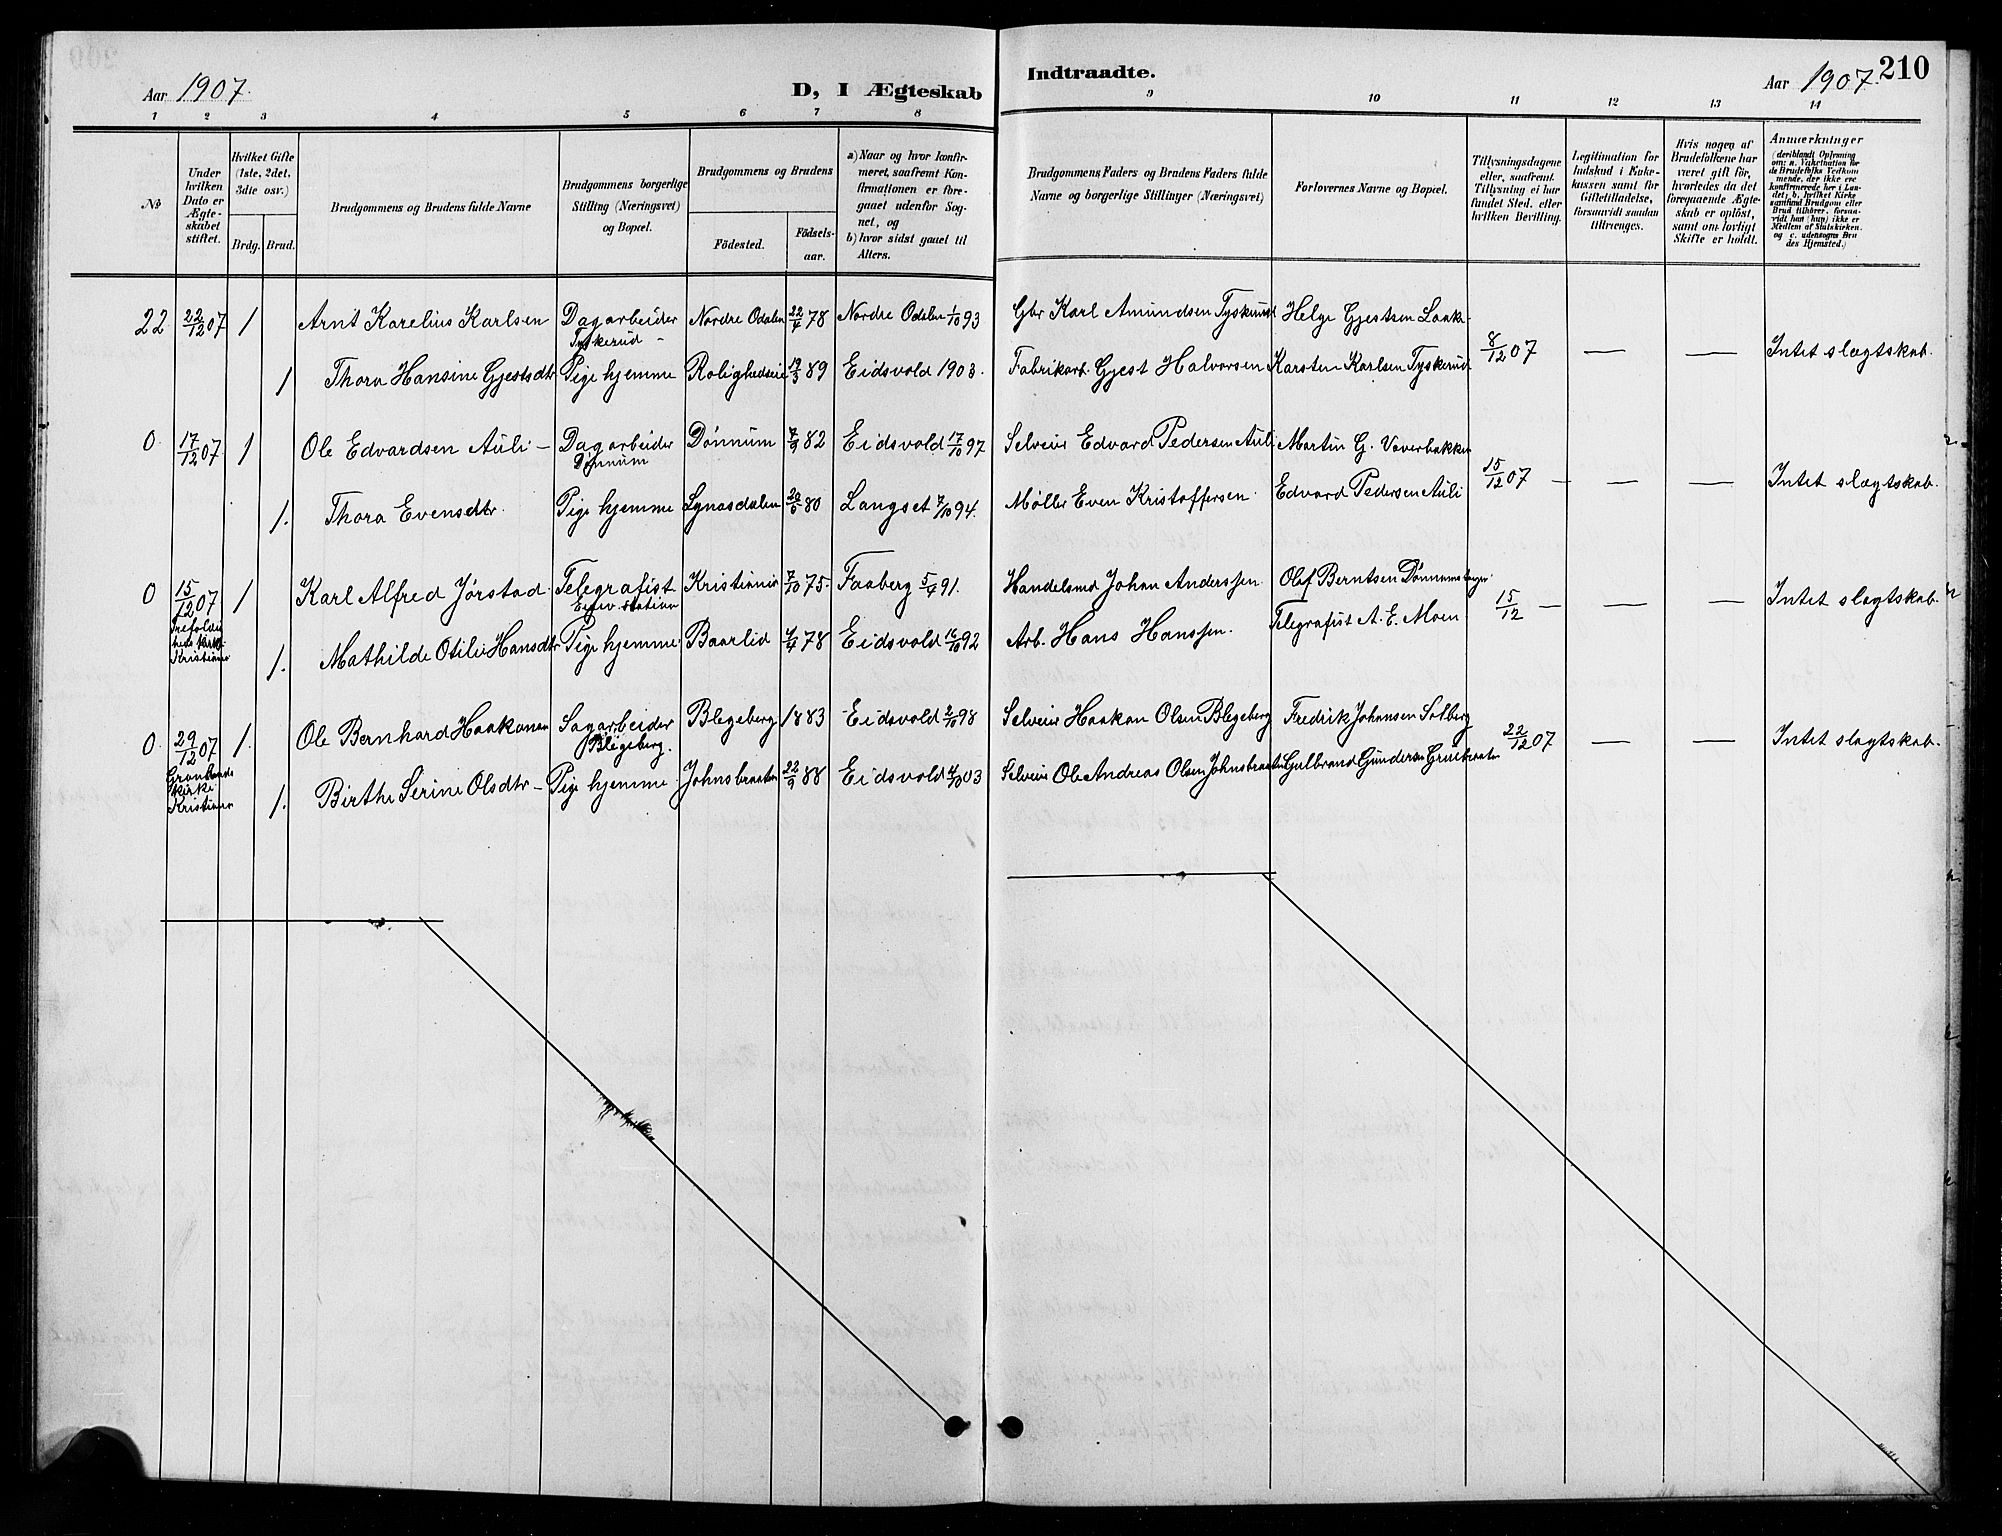 Aar 1907.
D, I Ægteskab
Indtraadte.
Aar 1907.
210
1 2 3 4 5 6 7 8 9 10 11 12 13 14
No
Under hvilken Dato er Ægteskabet stiftet.
Hvilket Gifte (1ste, 2det, 3die osv.)
Brdg. Brud.
Brudgommens og Brudens fulde Navne
Brudgommens borgerlige Stilling (Næringsvei) og Bopæl.
Brudgommens og Brudens
Födested.
Födselsaar.
a) Naar og hvor konfirmeret, saafremt Konfirmationen er foregaaet udenfor Sognet, og
b) hvor sidst gaaet til Alters.
Brudgommens Faders og Brudens Faders fulde Navne og borgerlige Stillinger (Næringsvei)
Forlovernes Navne og Bopæl.
Tillysningsdagene eller, saafremt Tillysning ei har fundet Sted, efter hvilken Bevilling.
Legitimation for Indskud i Enkekassen samt for Giftetilladelse, forsaavidt saadan tiltrænges.
Hvis nogen af Brudefolkene har været gift för, hvorledes da det foregaaende Ægteskab er oplöst, samt om lovligt Skifte er holdt.
Anmærkninger
(deriblandt Oplysning om: a. Vakcination for de Brudefolks Vedkommende, der ikke ere konfirmerede her i Landet; b. hvilket Kirkesamfund Brudgom eller Brud tilhörer, forsaavidt han (hun) ikke er Medlem af Statskirken, og c. udensogns Brudes Hjemsted.)
22 22/12 07 1 Arnt Karelius Karlsen Dagarbeider Tyskerud - Nordre Odalen 22/4 78 Nordre Odalen 1/10 93 Gbr Karl Amundsen Tyskerud Helge Gjestsen Laake 8/12 07 — — Intet slægtskab.
1 Thora Hansine Gjestsdtr Pige hjemme Rolighedseie 19/3 89 Eidsvold 1903. Fabrikarb. Gjest Halvorsen Karsten Karlsen Tyskerud
0 17/12 07 1 Ole Edvardsen Auli - Dagarbeider Dönnum Dönnum 7/9 82 Eidsvold 17/10 97 Selveier Edvard Pedersen Auli Martin G. 15/12 07 — — — Intet slægtskab.
1. Thora Evensdtr. Pige hjemme 80 Langset 7/10 94. Møller Even Kristoffersen. Edvard Pedersen Auli
0 15/12 07 Trefoldighedskirk. Kristiania 1 Karl Alfred Jørstad. Telegrafist Eidsv. station Kristiania 7/10 75. Faaberg 5/4 91. Handelsmd Johan Anderssen. Olaf Berntsen 15/12 — — — Intet slægtskab.
1. Mathilde Otilie Hansdtr Pige hjemme. Baarlid 4/4 78 Eidsvold 16/10 92 Arb. Hans Hanssen. Telegrafist A. E. Moen
0. 29/12 07 Grønlands Kirke Kristiania 1. Ole Bernhard Haakonsen Sagarbeider Blegeberg. Blegeberg 1883 Eidsvold 2/10 98 Selveier Haakon Olsen Blegeberg Fredrik Johansen Solberg 22/12 07 — — Intet slægtskab.
1. Birthe Serine Olsdtr - Pige hjemme Johnsbraaten 22/9 88 Eidsvold 4/10 03 Selveier Ole Andreas Olsen Johnsbraaten Gulbrand Gundersen